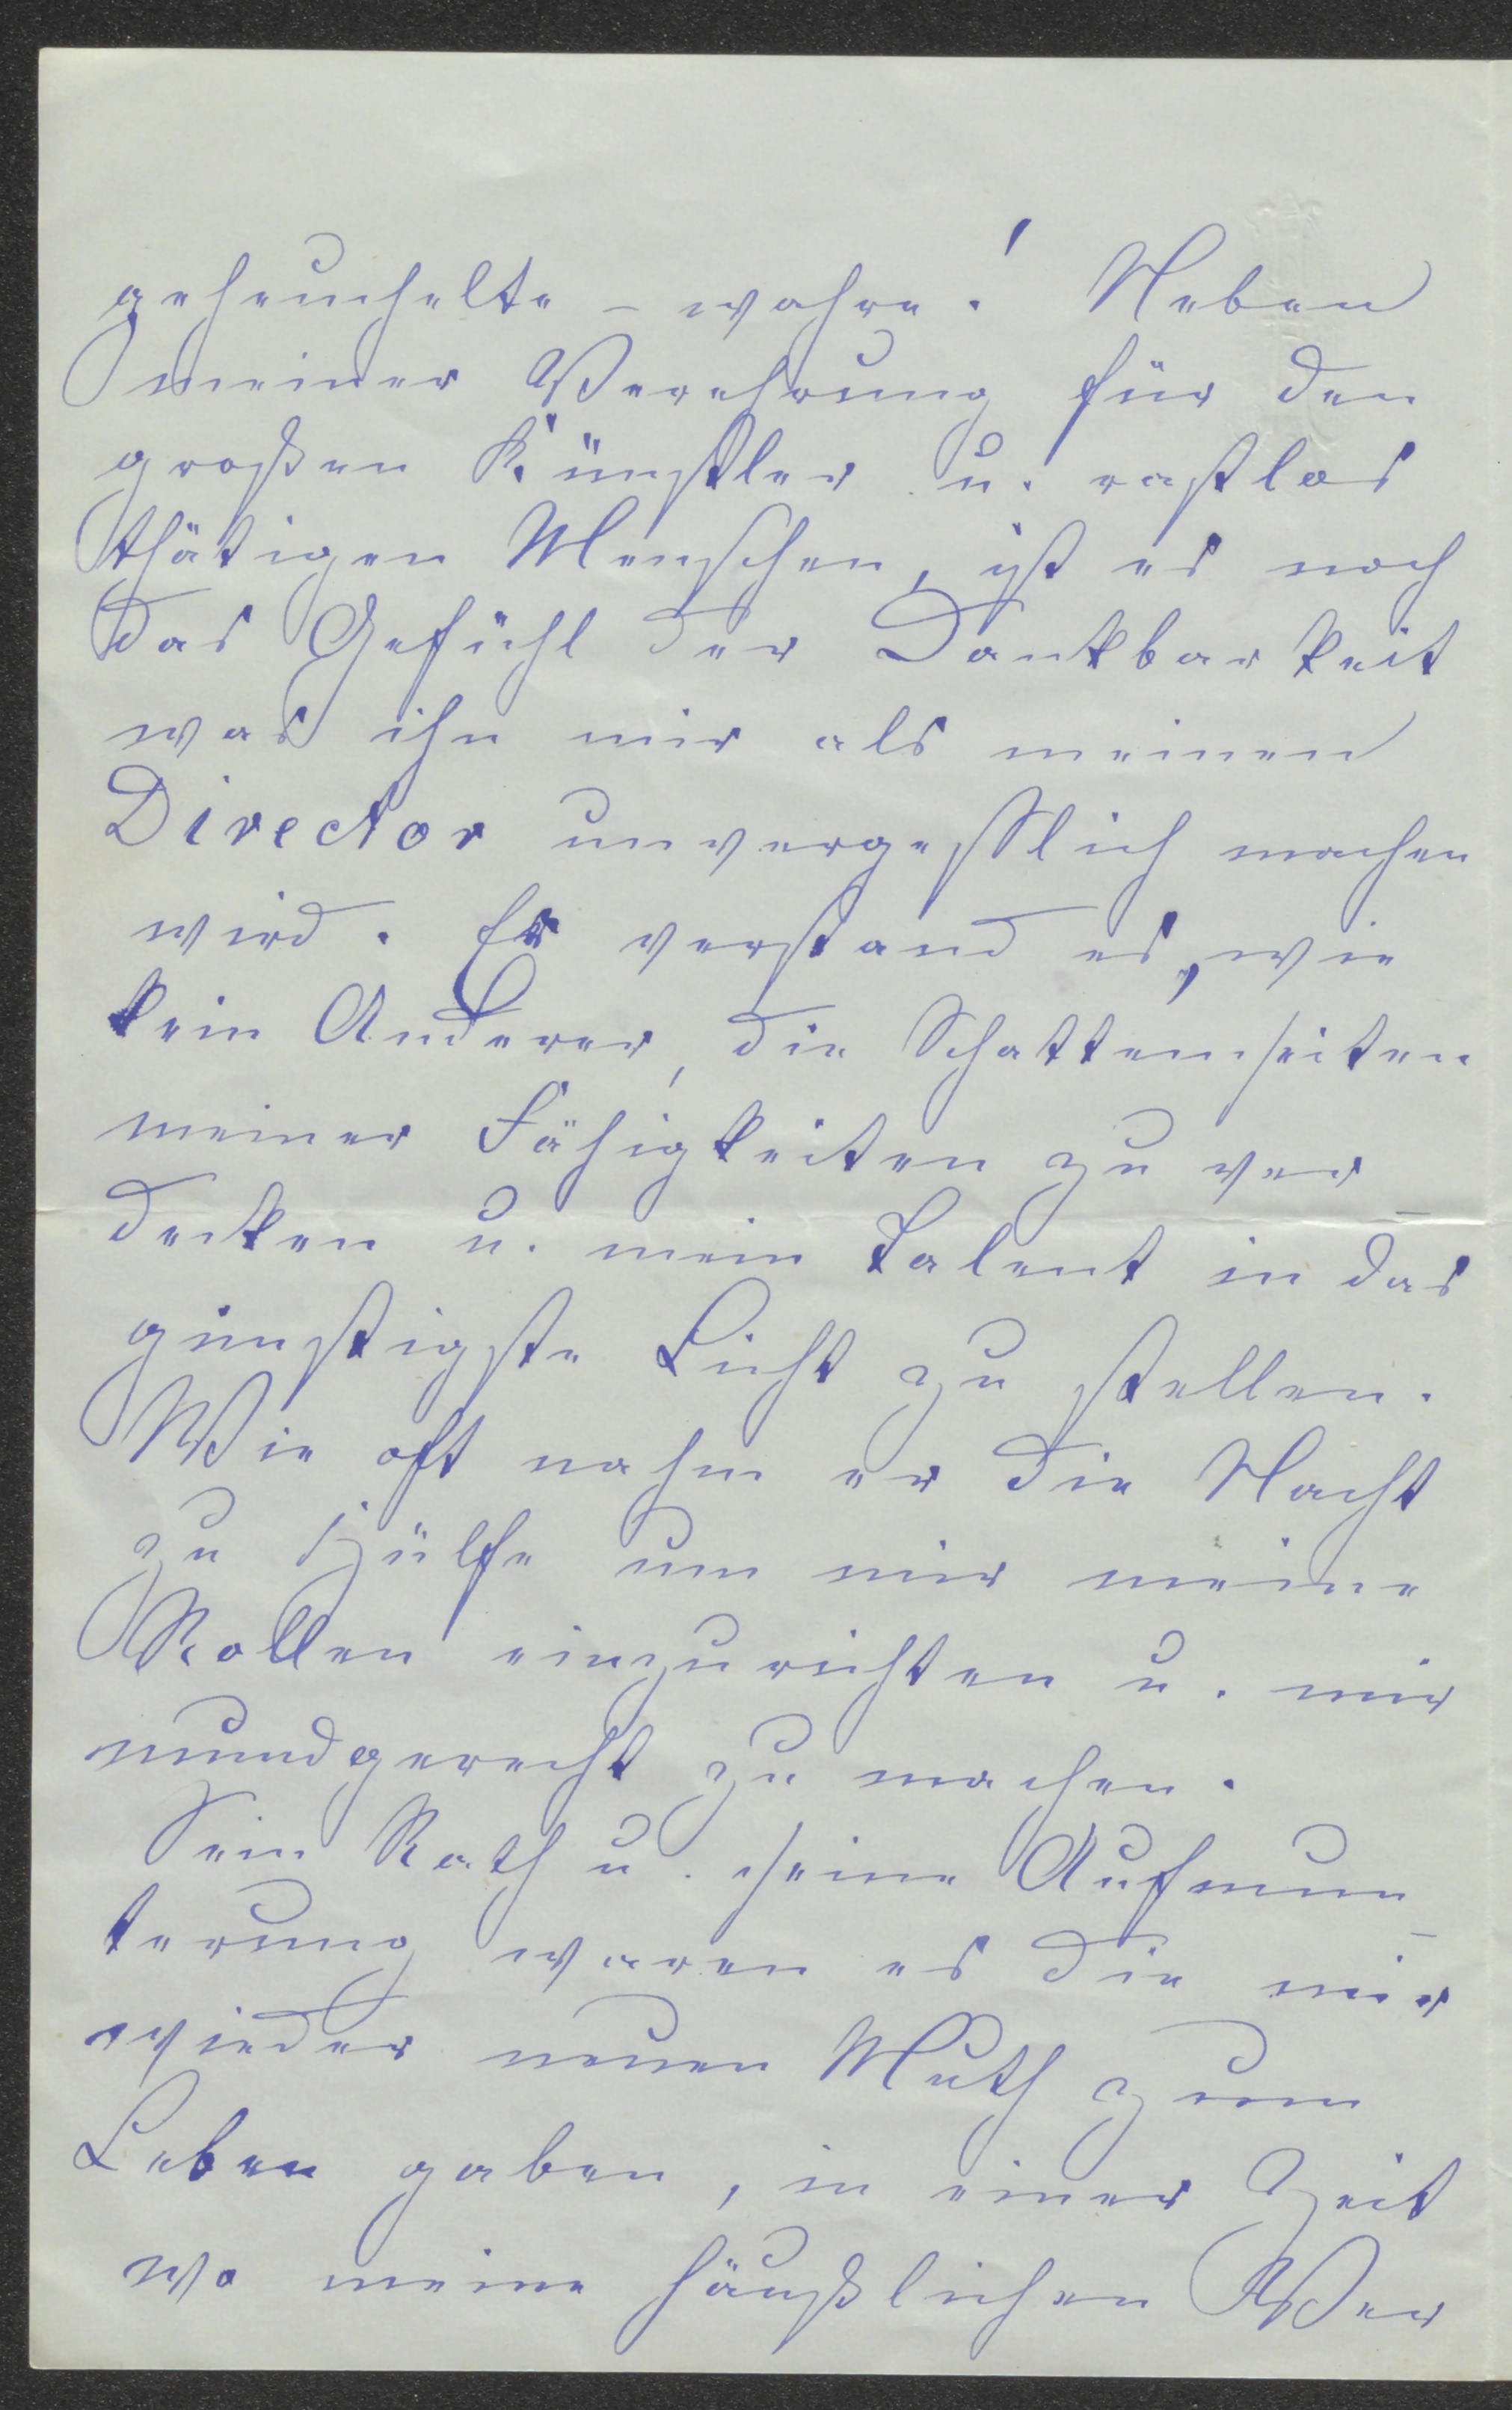 geheuchelte – wahre! Neben
meiner Verehrung für den
großen Künstler u. rastlos
thätigen Menschen, ist es noch
das Gefühl der Dankbarkeit
was ihn mir als meinen
Director unvergesslich machen
wird. Er verstand es, wie
kein Anderer, die Schattenseiten
meiner Fähigkeiten zu ver-
decken u. mein Talent in das
günstigste Licht zu stellen.
Wie oft nahm er die Nacht
zu Hülfe um mir meine
Rollen einzurichten u. mir
mundgerecht zu machen.
Sein Rath u. seine Aufmun-
terung waren es die mir
wieder neuen Muth zum
Leben gaben, in einer Zeit
wo meine häußlichen Ver